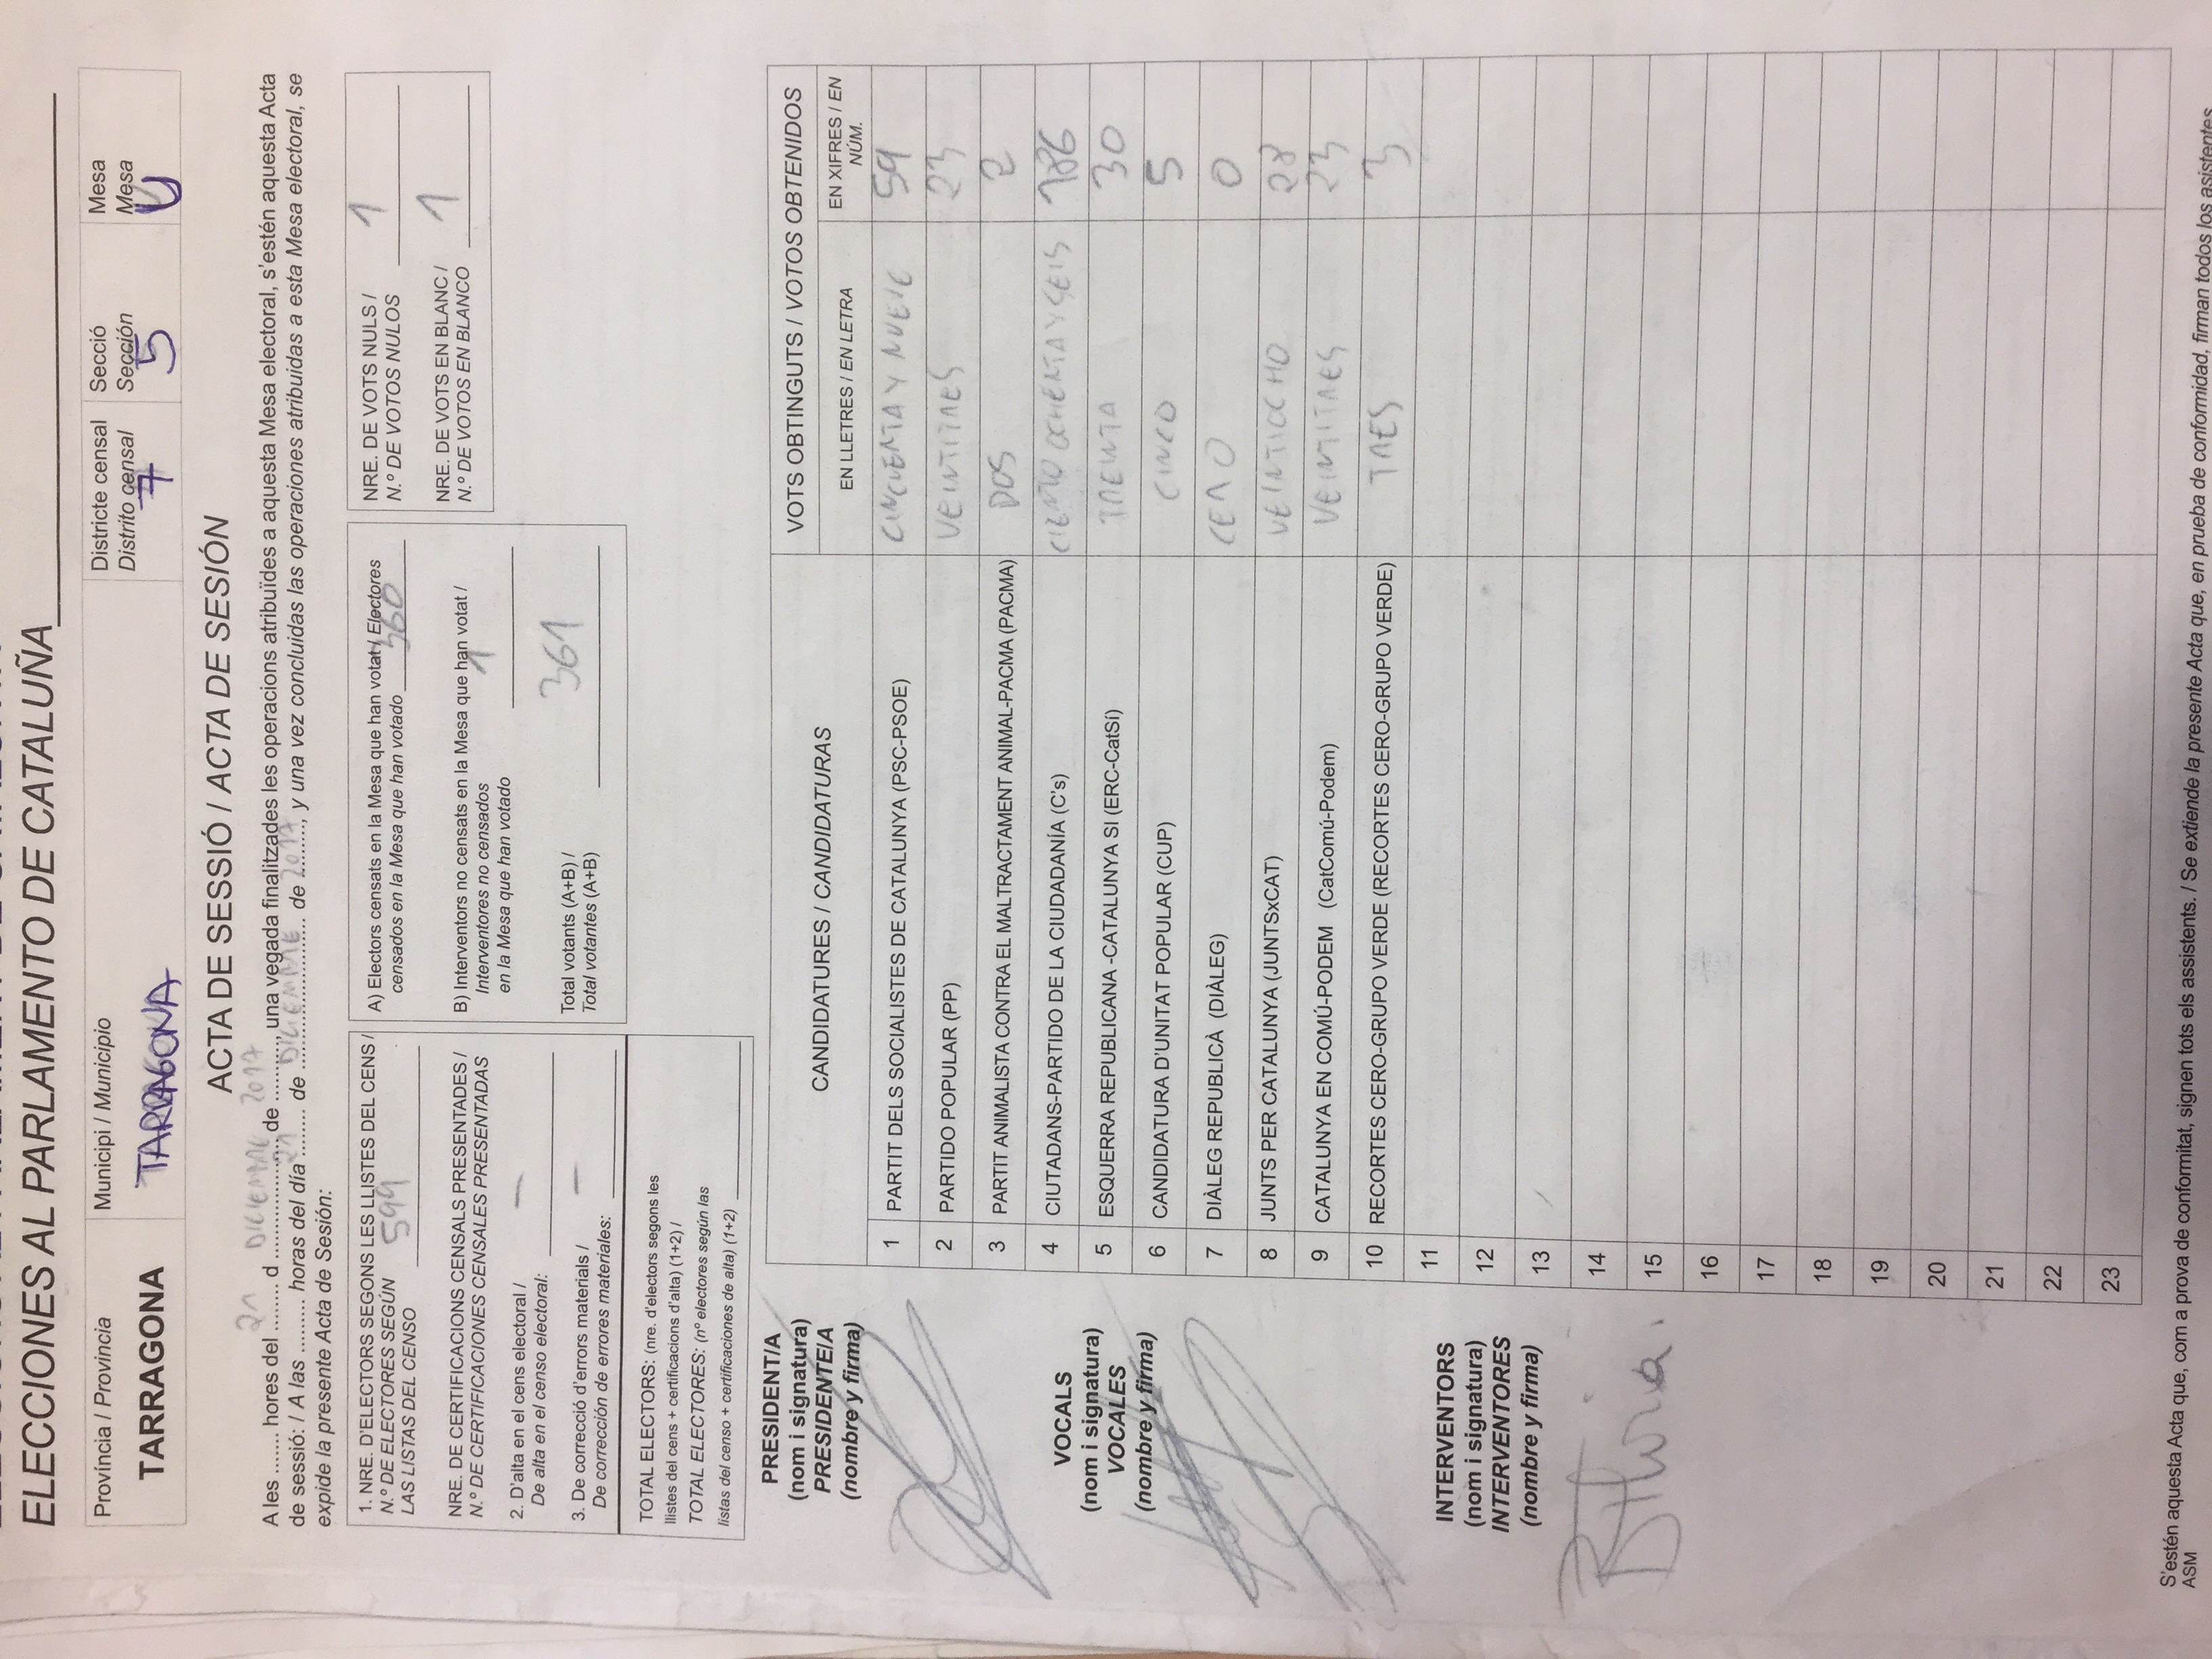 ELECCIONES AL PARLAMENTO DE CATALUÑA
Província / Provincia
TARRAGONA
Municipi / Municipio
TARRAGONA
Districte censal
Distrito censal
7
Secció
Sección
5
Mesa
Mesa
U
ACTA DE SESSIÓ / ACTA DE SESIÓN
A les ....... hores del 21 d DICIEMBRE de 2017, una vegada finalitzades les operacions atribuïdes a aquesta Mesa electoral, s'estén aquesta Acta
de sessió: / A las ......... horas del día 21 de DICIEMBRE de 2017, y una vez concluidas las operaciones atribuidas a esta Mesa electoral, se
expide la presente Acta de Sesión:
1. NRE. D'ELECTORS SEGONS LES LLISTES DEL CENS /
N.º DE ELECTORES SEGÚN
LAS LISTAS DEL CENSO 599
NRE. DE CERTIFICACIONS CENSALS PRESENTADES /
N.º DE CERTIFICACIONES CENSALES PRESENTADAS
2. D'alta en el cens electoral /
De alta en el censo electoral: —
3. De correcció d'errors materials /
De corrección de errores materiales: —
TOTAL ELECTORS: (nre. d'electors segons les
llistes del cens + certificacions d'alta) (1+2) /
TOTAL ELECTORES: (nº electores según las
listas del censo + certificaciones de alta) (1+2)
A) Electors censats en la Mesa que han votat / Electores
censados en la Mesa que han votado 360
B) Interventors no censats en la Mesa que han votat /
Interventores no censados
en la Mesa que han votado 1
Total votants (A+B) /
Total votantes (A+B) 361
NRE. DE VOTS NULS /
N.º DE VOTOS NULOS 1
NRE. DE VOTS EN BLANC /
N.º DE VOTOS EN BLANCO 1
PRESIDENT/A
(nom i signatura)
PRESIDENTE/A
(nombre y firma)
VOCALS
(nom i signatura)
VOCALES
(nombre y firma)
INTERVENTORS
(nom i signatura)
INTERVENTORES
(nombre y firma)
CANDIDATURES / CANDIDATURAS
VOTS OBTINGUTS / VOTOS OBTENIDOS
EN LLETRES / EN LETRA
EN XIFRES / EN
NÚM.
1 PARTIT DELS SOCIALISTES DE CATALUNYA (PSC-PSOE) CINCUENTA Y NUEVE 59
2 PARTIDO POPULAR (PP) VEINTITRES 23
3 PARTIT ANIMALISTA CONTRA EL MALTRACTAMENT ANIMAL-PACMA (PACMA) DOS 2
4 CIUTADANS-PARTIDO DE LA CIUDADANÍA (C's) CIENTO OCHENTA Y SEIS 186
5 ESQUERRA REPUBLICANA -CATALUNYA SI (ERC-CatSí) TREINTA 30
6 CANDIDATURA D'UNITAT POPULAR (CUP) CINCO 5
7 DIÀLEG REPUBLICÀ (DIÀLEG) CERO 0
8 JUNTS PER CATALUNYA (JUNTSxCAT) VEINTIOCHO 28
9 CATALUNYA EN COMÚ-PODEM (CatComú-Podem) VEINTITRES 23
10 RECORTES CERO-GRUPO VERDE (RECORTES CERO-GRUPO VERDE) TRES 3
11
12
13
14
15
16
17
18
19
20
21
22
23
S'estén aquesta Acta que, com a prova de conformitat, signen tots els assistents. / Se extiende la presente Acta que, en prueba de conformidad, firman todos los asistentes
ASM